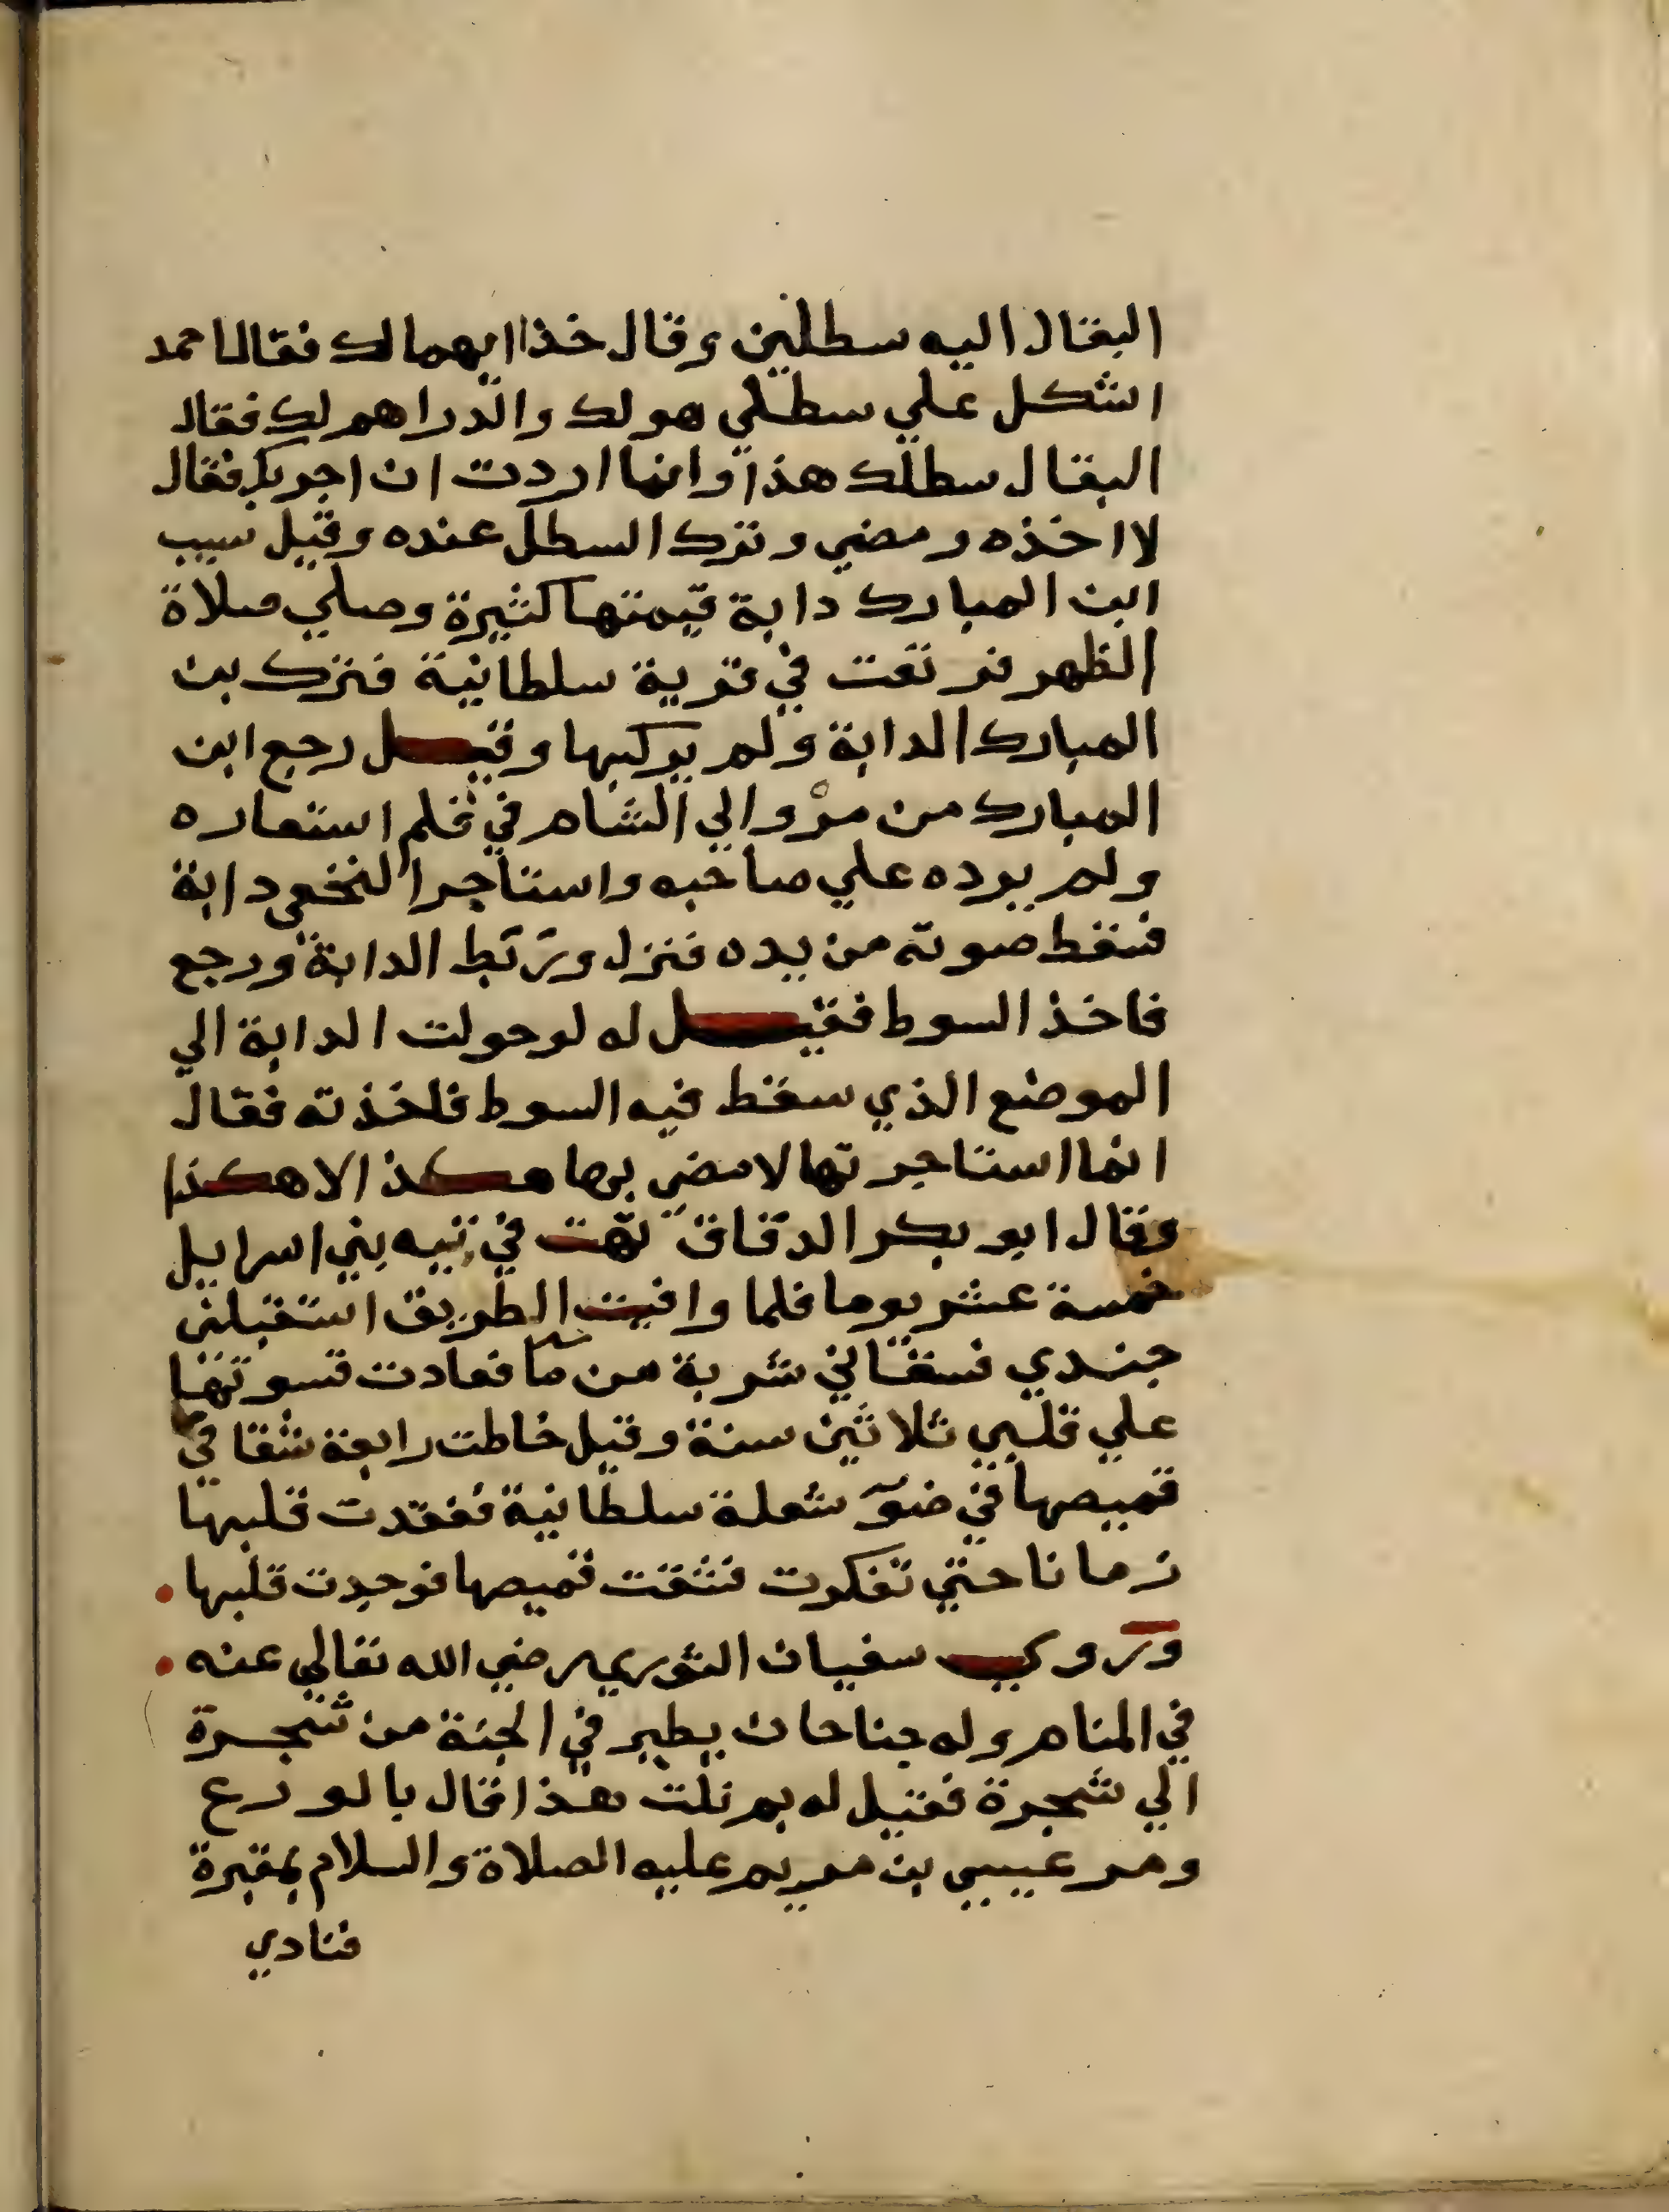 البقال اليه سطلين وقال خذ ايهما لك فقال احمد
اشكل علي سطلي هو لك والدراهم لك فقال
البقال سطلك هذا وانما اردت ان اجربك فقال
لا اخذه ومضي وترك السطل عنده وقيل سيب
ابن المبارك دابة قيمتها كثيرة وصلي صلاة
الظهر فرتعت في قرية سلطانية فترك بن
المبارك الدابة ولم يركبها وقيل رجع ابن
المبارك من مرْو الي الشام في قلم استعاره
ولم يرده علي صاحبه واستاجر النخعي دابة
فسقط صوته من يده فنزل وربط الدابة ورجع
فاخذ السوط فقيل له لو حولت الدابة الي
الموضع الذي سقط فيه السوط فاخذته فقال
انما استاجرتها لامضي بها هكذا لا هكذا
وقال ابو بكر الدقاق تهت في تيه بني اسرايل
خمسة عشر يوما فلما وافيت الطريق استقبلني
جندي فسقاني شربة من ما فعادت قسوتها
علي قلبي ثلاثين سنة وقيل خاطت رابعة شقا في
قميصها في ضوء شعلة سلطانية ففقدت قلبها
زمانا حتي تفكرت فشقت قميصها فوجدت قلبها
وروي سفيان الثوري رضي الله تعالي عنه
في المنام وله جناحان يطير في الجنة من شجرة
الي شجرة فقيل له بم نلت هذا قال بالورع
ومر عيسي بن مريم عليه الصلاة والسلام بمقبرة
فنادي